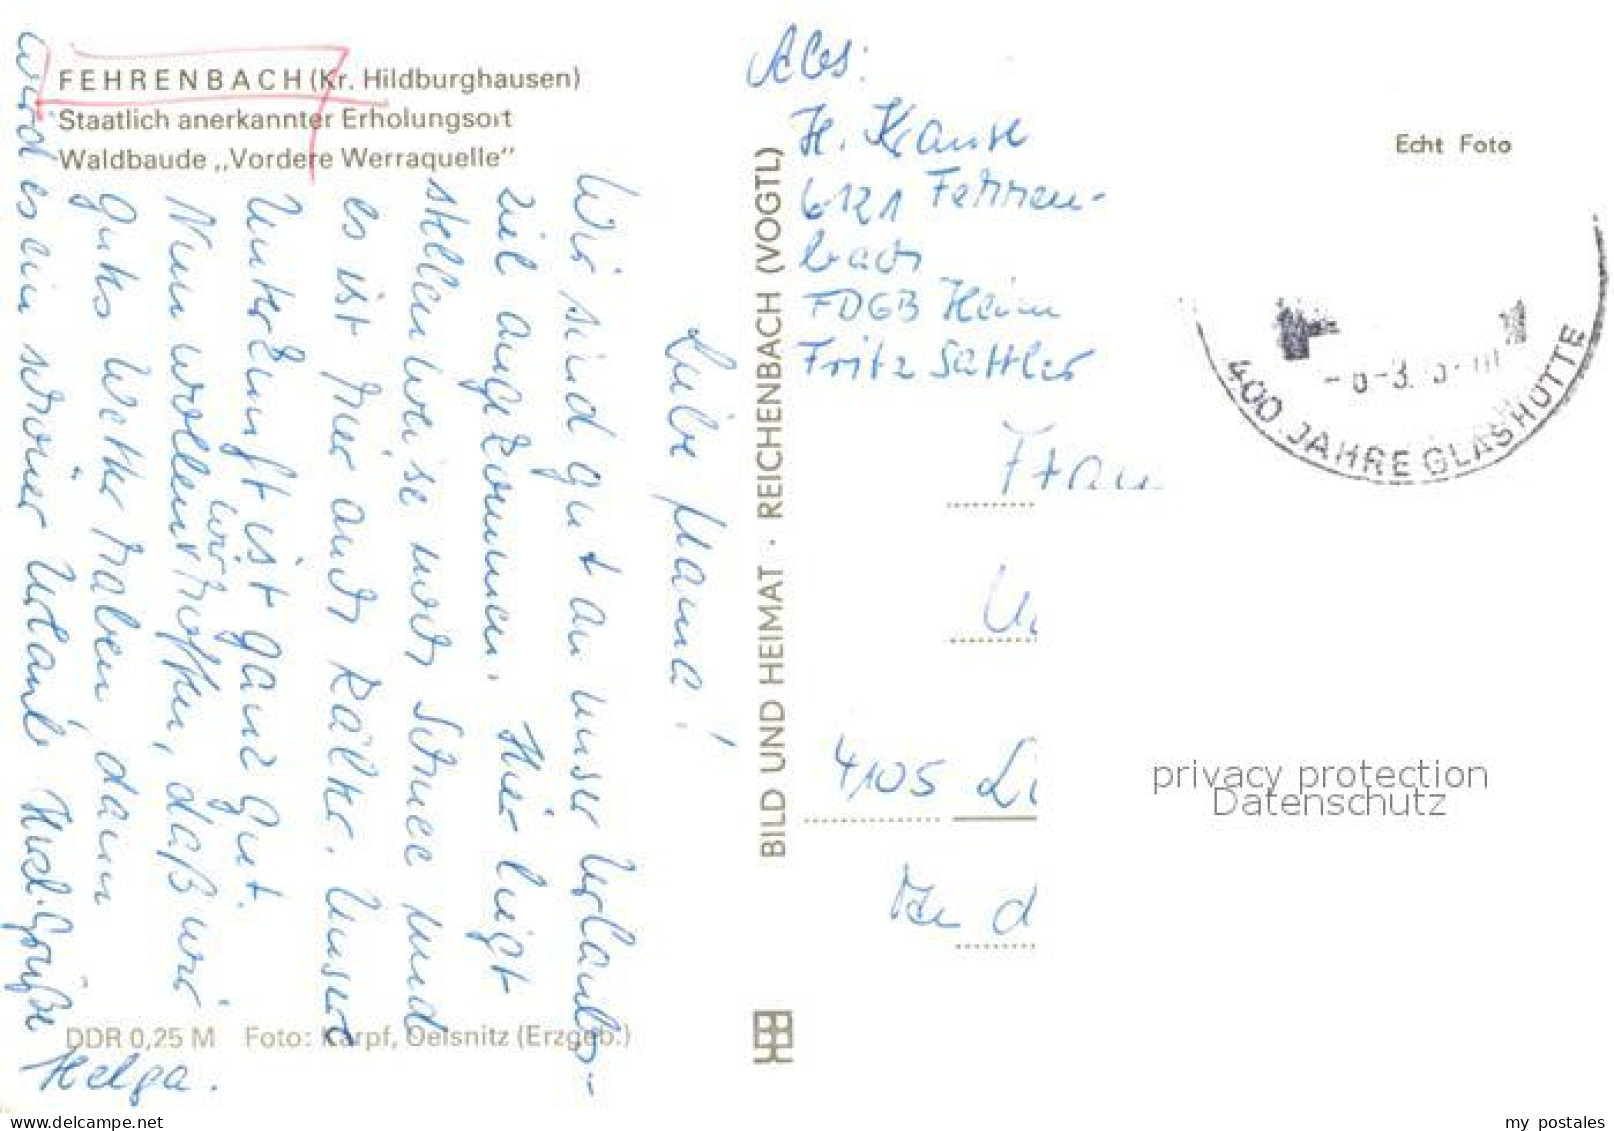 FEHRENBACH (Kr. Hildburghausen)
Staatlich anerkannter Erholungsort
Waldbaude „Vordere Werraquelle"
Liebe Mama!
Wir sind gut an unser Urlaubs-
ziel angekommen. Hier liegt
stellenweise noch Schnee und
es ist hier auch kälter. Unsere
Unterkunft ist ganz gut.
Nun wollen wir hoffen, daß wir
gutes Wetter haben, dann
wird es ein schöner Urlaub. Herzl. Grüße
Helga.
DDR 0,25 M Foto: Karpf, Oelsnitz (Erzgeb.)
BILD UND HEIMAT · REICHENBACH (VOGTL)
Abs:
H. Krause
6121 Fehren-
bach
FDGB Heim
Fritz Sattler
Echt Foto
400 JAHRE GLASHÜTTE
Frau
4105
privacy protection
Datenschutz
www.delcampe.net
my_postales